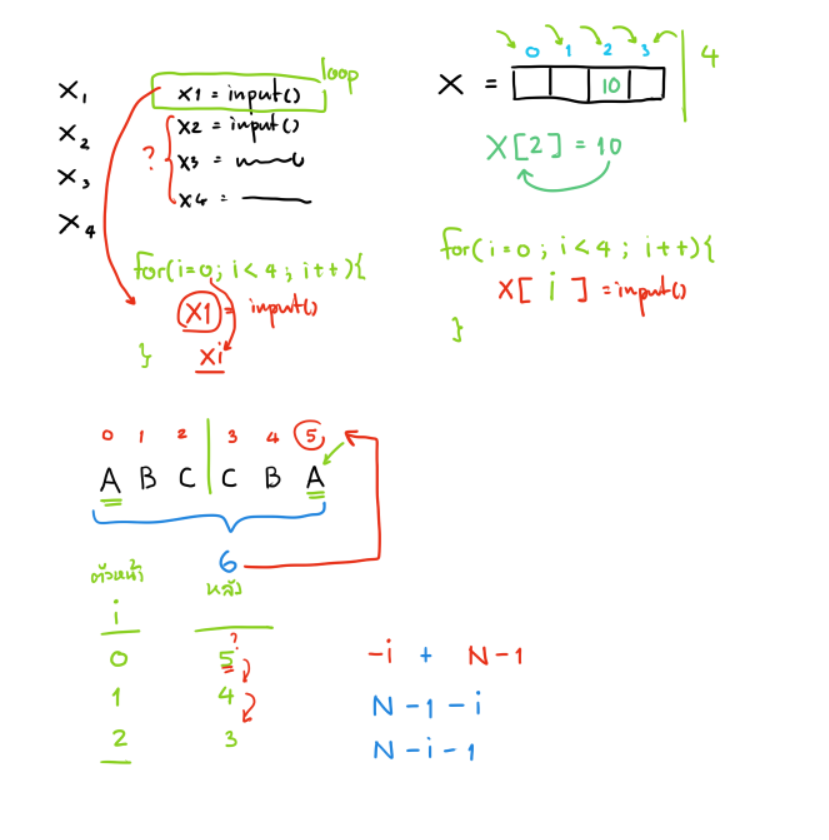 X₁
X₂
X₃
X₄
loop
X1 = input()
X2 = input()
?
X3 =
X4 =
for(i=0; i<4; i++){
X1 = input()
}
Xi
0 1 2 3
4
X =
10
X[2] = 10
for(i=0; i<4; i++){
X[i] = input()
}
0 1 2 3 4 5
A B C C B A
6
ตัวหน้า
หลัง
i
?
0 5
1 4
2 3
-i + N-1
N-1-i
N-i-1